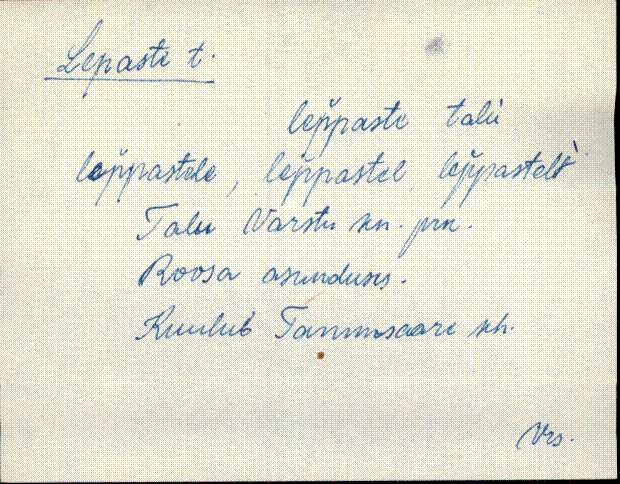 Lepasti t.
lep̆paste talu
lep̆pastele, lep̆pastel lep̆pastelt
Talu Varstu kn. prk.
Roosa asunduses.
Kuulub Tammsaare kh.
Vrs.